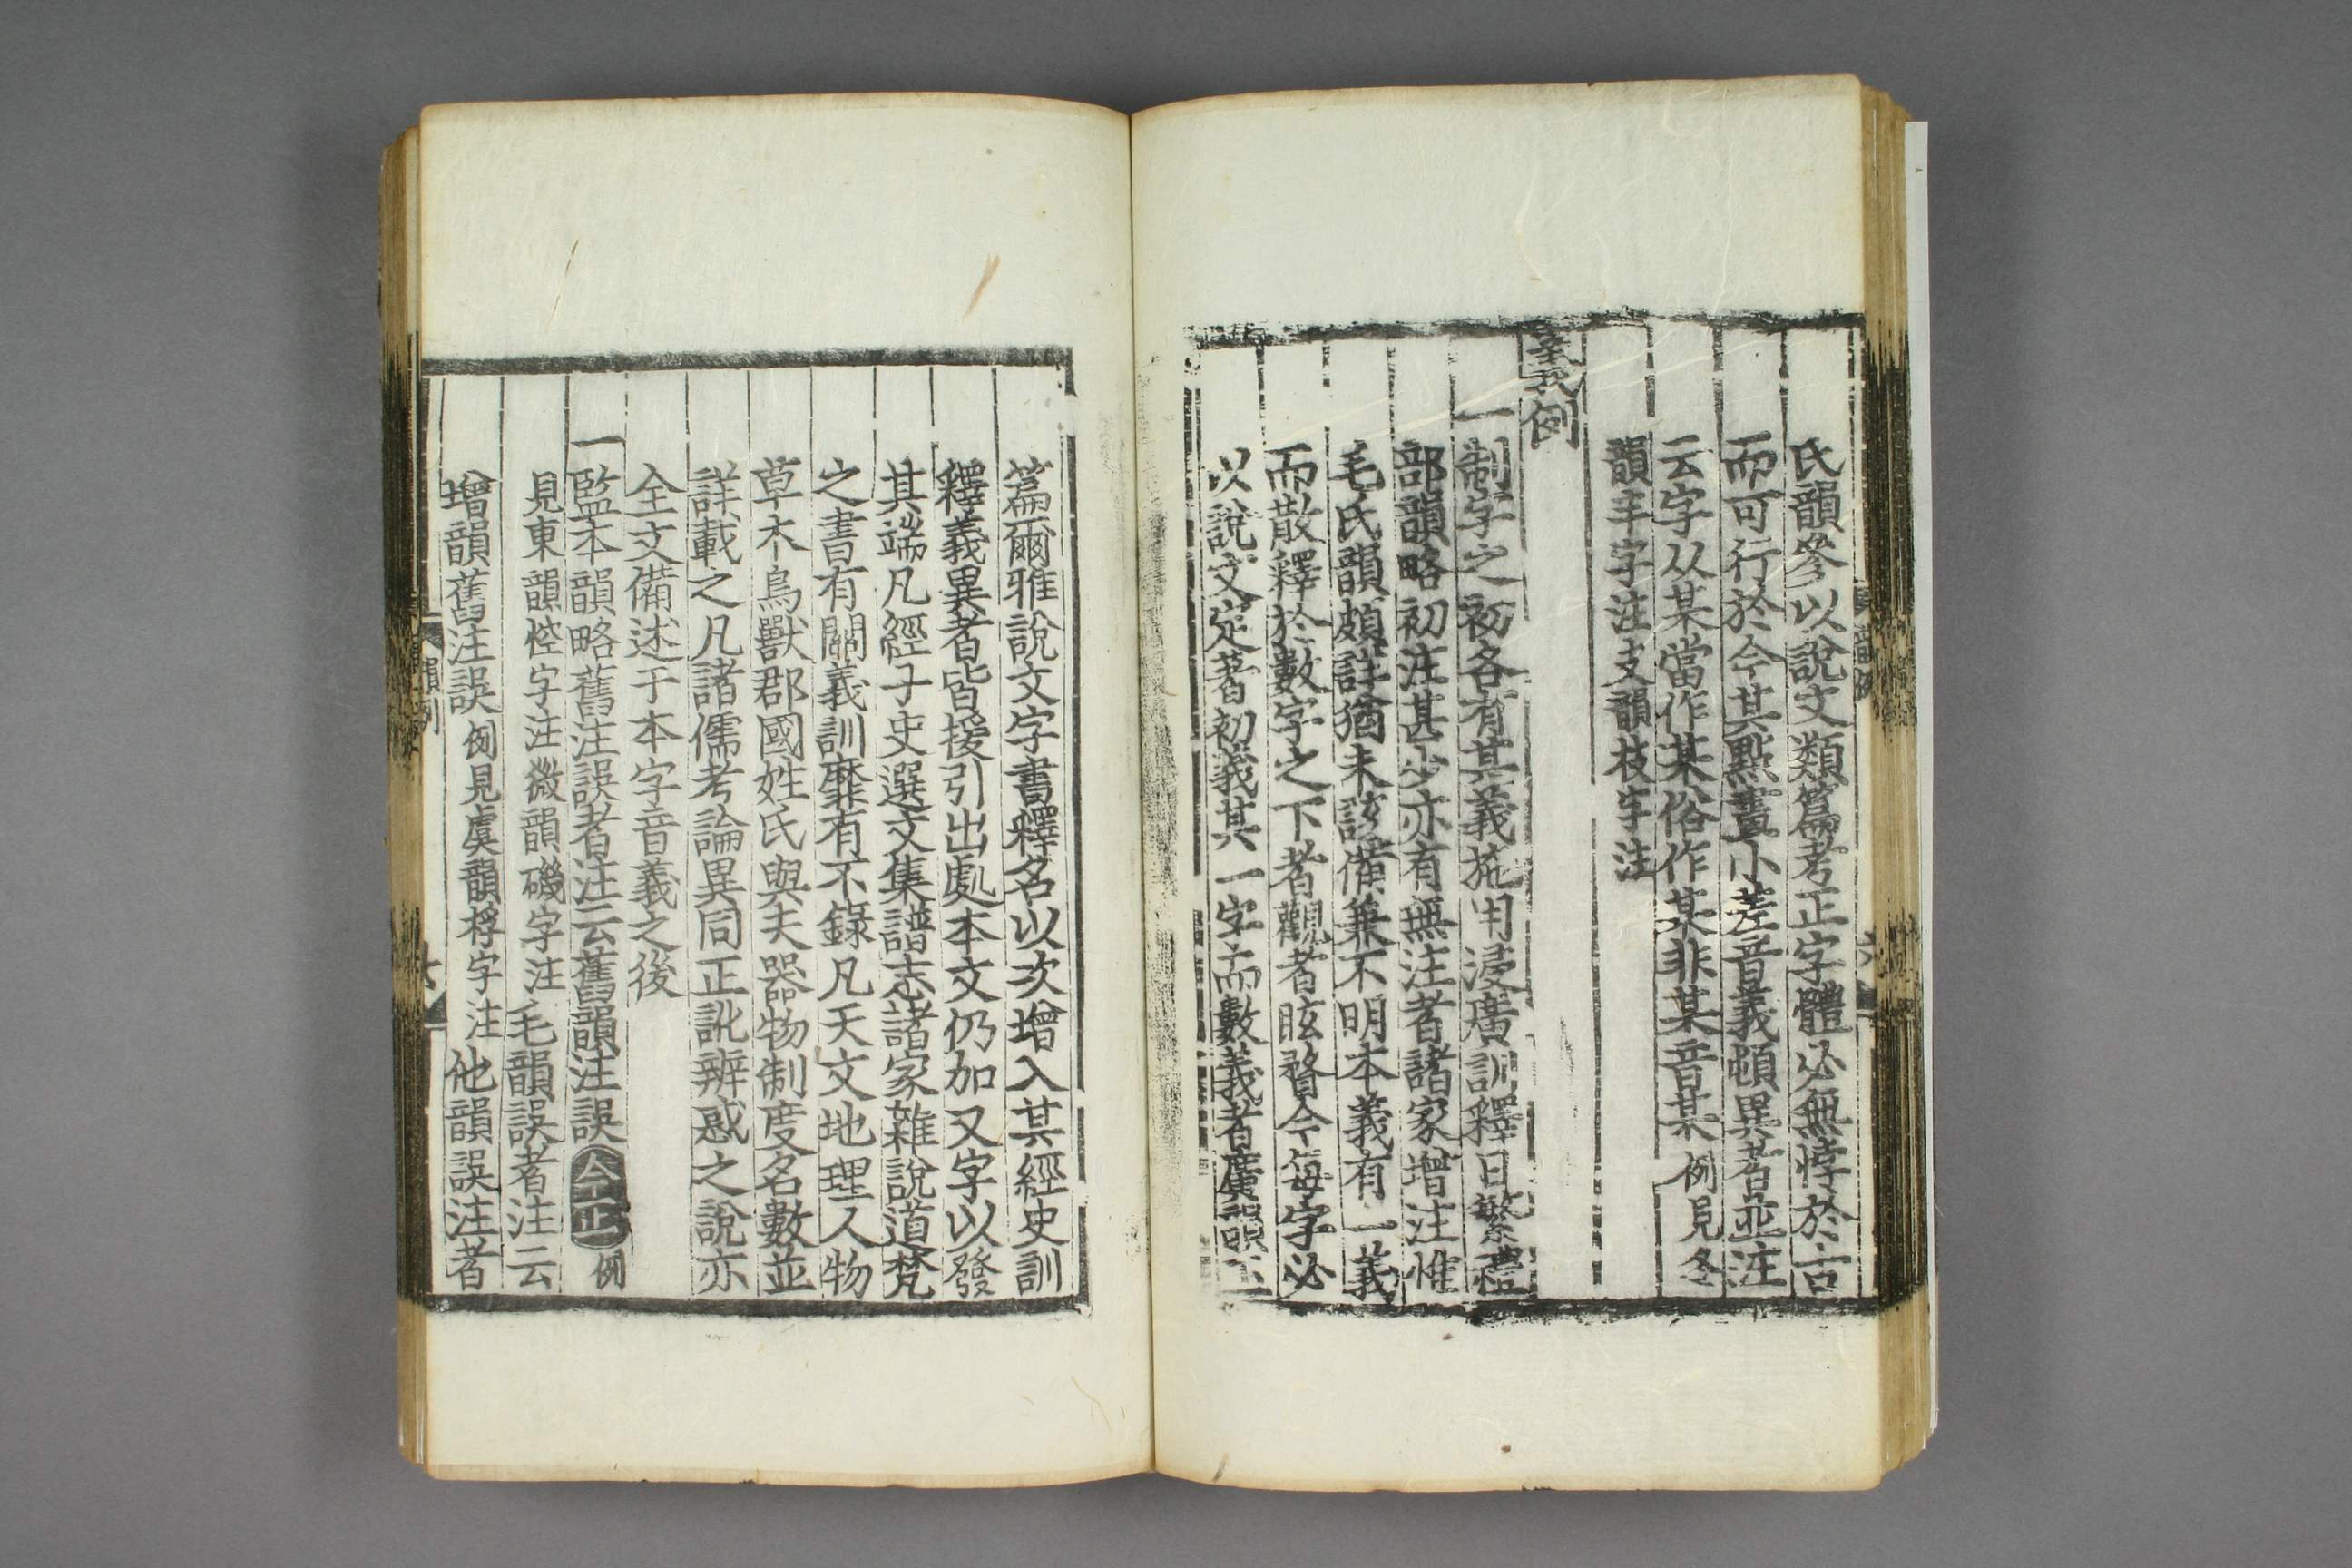 氏韻參以說文類篇考正字體必無悖於古
而可行於今其點畫小差音義頓異者並注
云字从某當作某俗作某非某音某例見冬
韻丰字注支韻枝字注
義例
一制字之初各有其義施用浸廣訓釋日繁禮
部韻略初注甚少亦有無注者諸家增注惟
毛氏韻頗詳猶未該備兼不明本義有一義
而散釋於數字之下者觀者眩瞀今每字必
以說文定著初義其一字而數義者廣韻玉
篇爾雅說文字書釋名以次增入其經史訓
釋義異者皆援引出處本文仍加又字以發
其端凡經子史選文集譜志諸家雜說道梵
之書有關義訓靡有不錄凡天文地理人物
草木鳥獸郡國姓氏與夫器物制度名數並
詳載之凡諸儒考論異同正訛辨惑之說亦
全文備述于本字音義之後
一監本韻略舊注誤者注云舊韻注誤今正例
見東韻悾字注微韻磯字注毛韻誤者注云
增韻舊注誤例見虞韻桴字注他韻誤注者
韻例